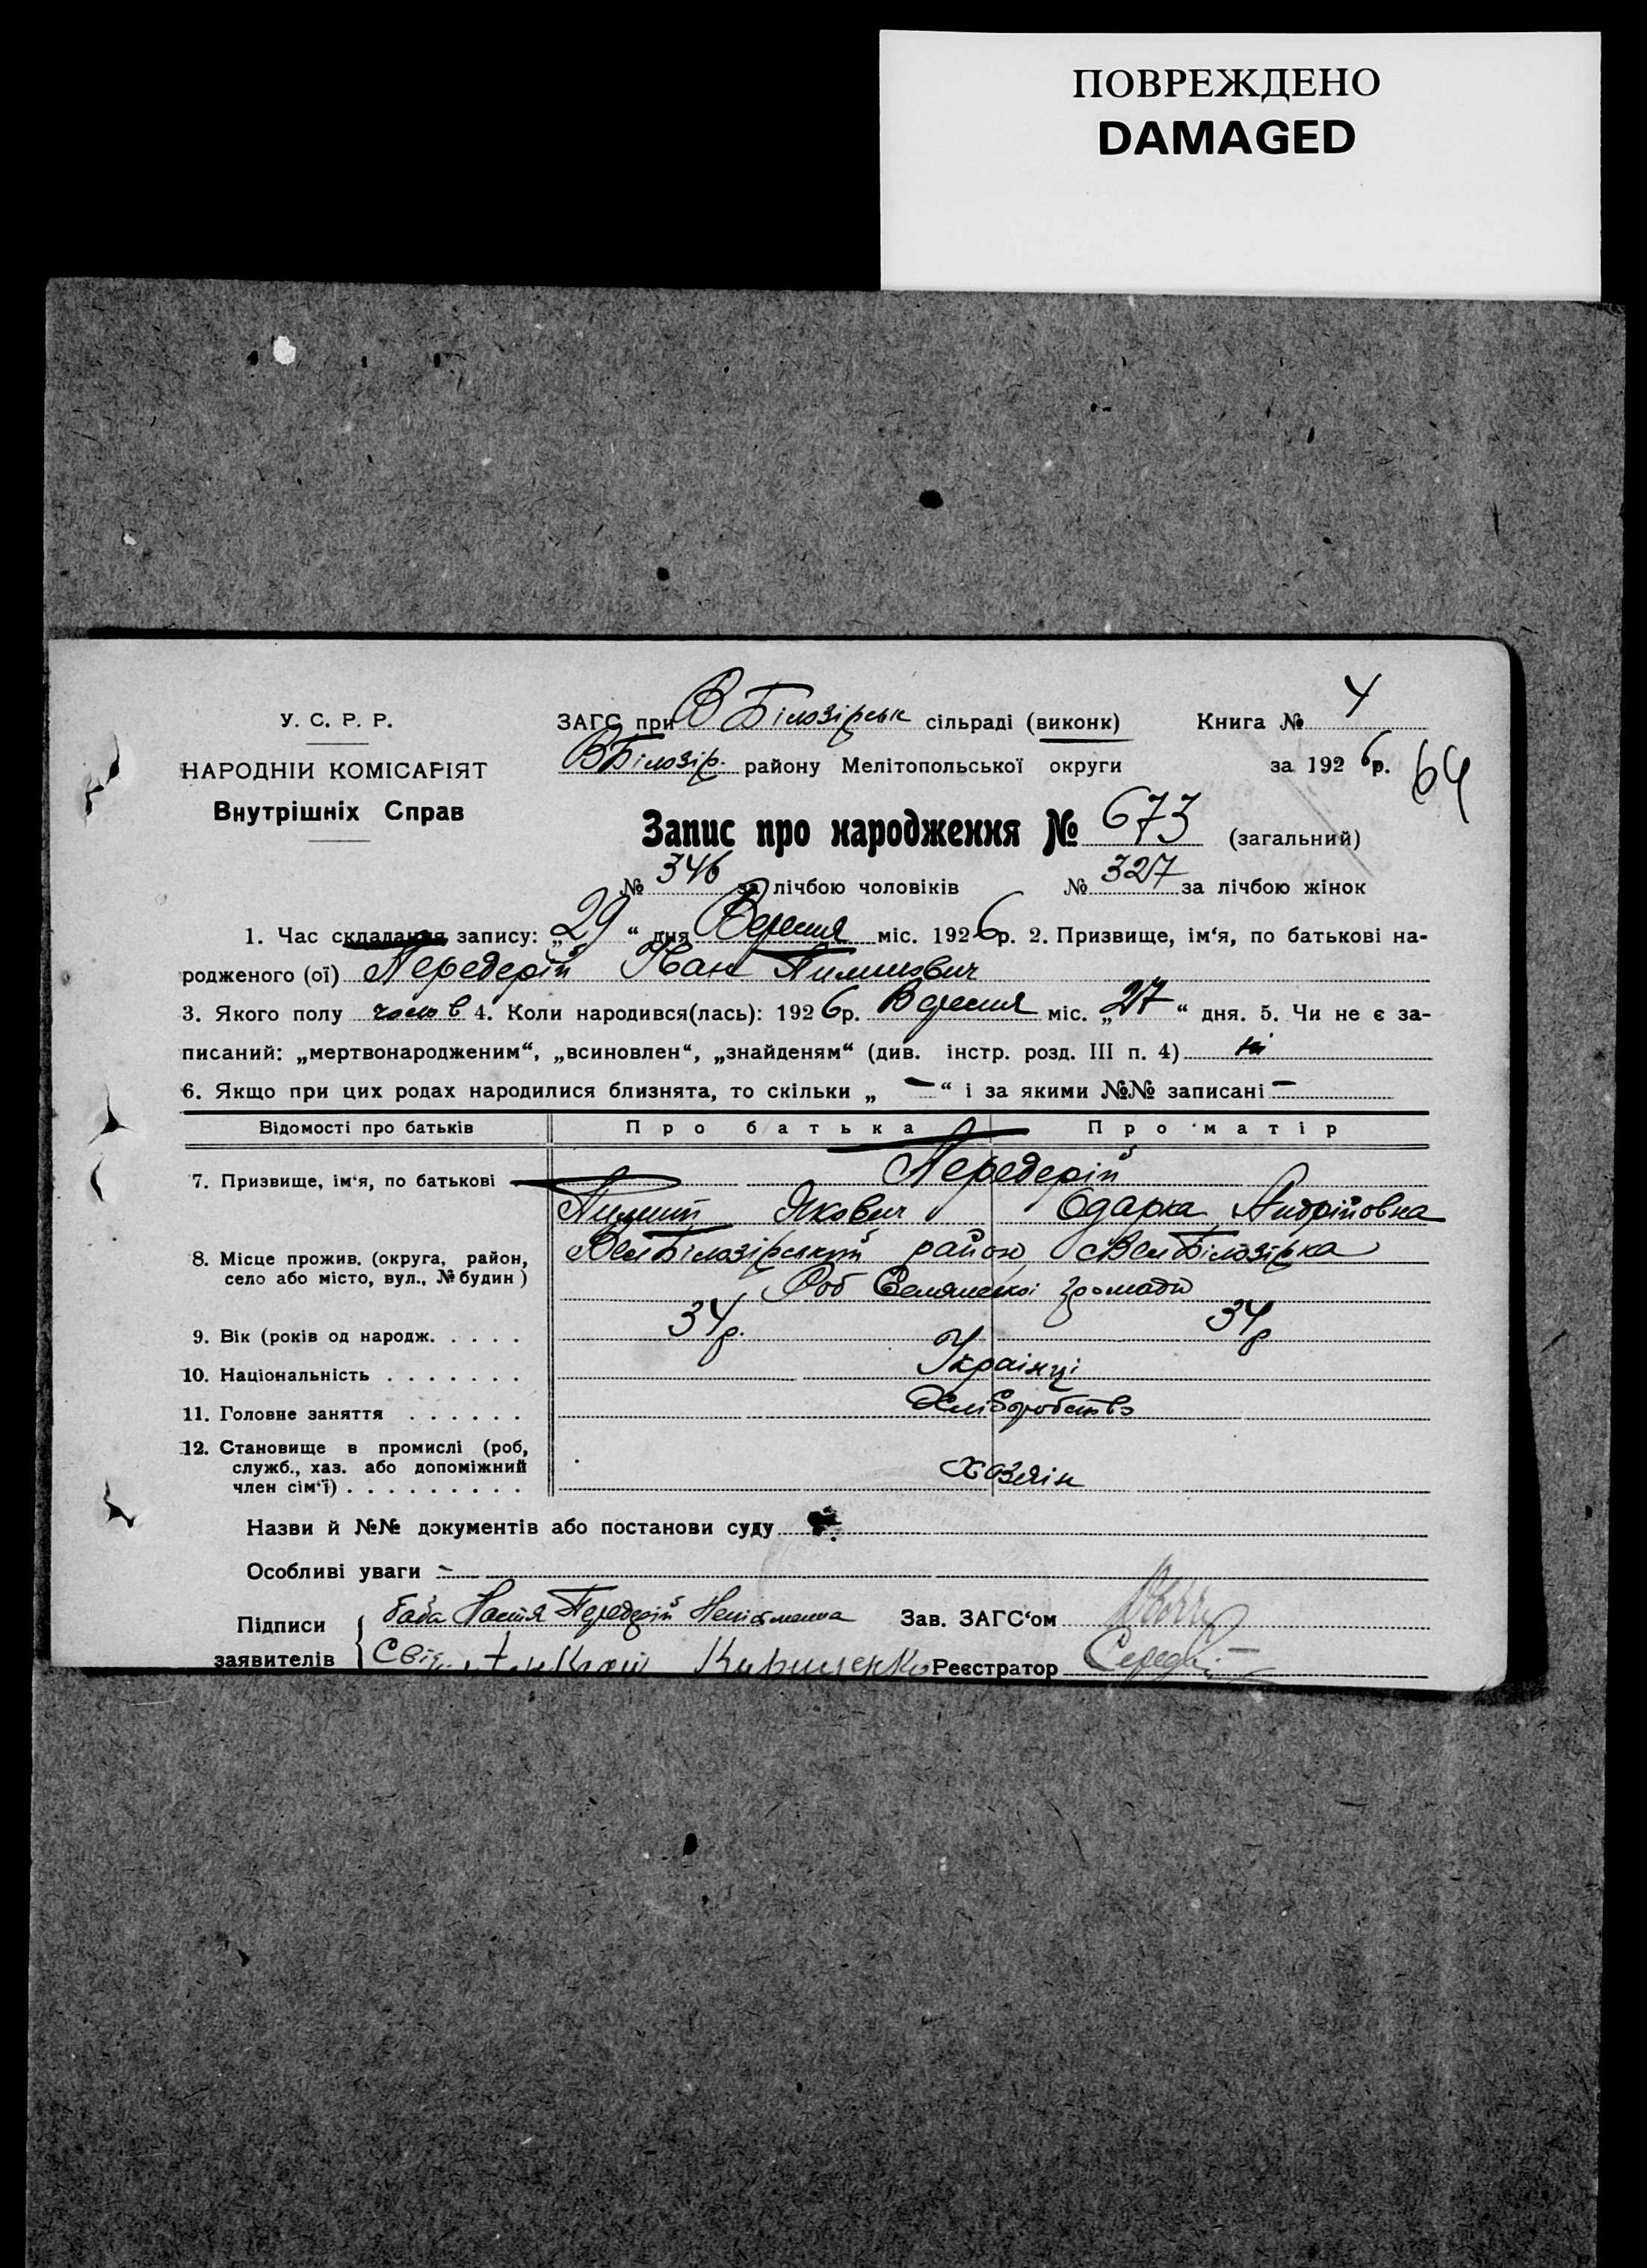 ПОВРЕЖДЕНО
DAMAGED
У. С. Р. Р.
НАРОДНІЙ КОМІСАРІЯТ
Внутрішніх Справ
ЗАГС при В Білозірськ сільраді (виконк)
Книга № 4
ВБілозір. району Мелітопольської округи
за 1926р.
64
Запис про народження № 673 (загальний)
№ 346 за лічбою чоловіків № 327 за лічбою жінок
1. Час складання запису: „29“ дня Вересня міс. 1926р. 2. Призвище, ім‘я, по батькові на-
родженого (ої) Передерій Іван Пилипович
3. Якого полу чолов 4. Коли народився(лась): 1926р. Вересня міс. „27“ дня. 5. Чи не є за-
писаний: „мертвонародженим“, „всиновлен“, „знайденям“ (див. інстр. розд. III п. 4) ні
6. Якщо при цих родах народилися близнята, то скільки „ — “ і за якими №№ записані —
Відомості про батьків Про батька Про матір
7. Призвище, ім‘я, по батькові Передерій
Пилип Якович Одарка Андрійовна
8. Місце прожив. (округа, район,
село або місто, вул., № будин)
ВелБілозірський район ВелБілозірка
громади
9. Вік (років од народж. . . . . 34р. 34р
10. Національність . . . . . . . Українці
11. Головне заняття . . . . . . Хліборобство
12. Становище в промислі (роб,
служб., хаз. або допоміжний
член сім‘ї) . . . . . . . . . хазяїн
Назви й №№ документів або постанови суду
Особливі уваги —
Підписи
заявителів
баба Настя Передерій Неписменна
Кириченко
Зав. ЗАГС‘ом
Реєстратор